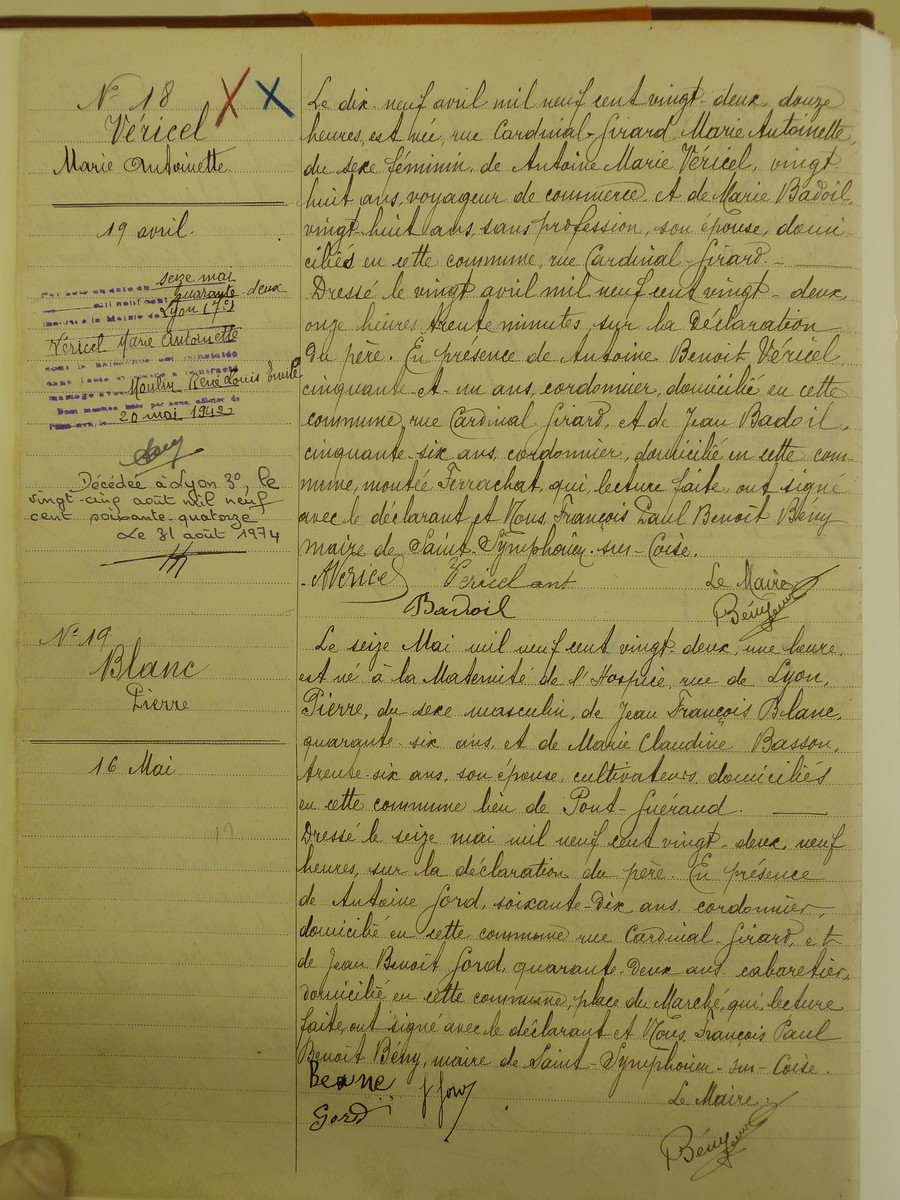 N° 18
Véricel
Marie Antoinette
19 avril.
seize mai
quarante-deux
Lyon (7e)
Véricel Marie Antoinette
Moulin René Louis Emile
20 mai 1942
Décédée à Lyon 3e, le
vingt-cinq août mil neuf
cent soixante-quatorze
Le 31 août 1974
Le dix-neuf avril mil neuf cent vingt-deux, douze
heures, est née, rue Cardinal-Girard, Marie Antoinette,
du sexe féminin, de Antoine Marie Véricel, vingt-
huit ans, voyageur de commerce, et de Marie Badoil,
vingt-huit ans, sans profession, son épouse, domi-
ciliés en cette commune, rue Cardinal-Girard.
Dressé le vingt avril mil neuf cent vingt-deux,
onze heures trente minutes, sur la déclaration
du père. En présence de Antoine Benoit Véricel,
cinquante-et-un ans, cordonnier, domicilié en cette
commune, rue Cardinal Girard, et de Jean Badoil,
cinquante-six ans, cordonnier, domicilié en cette com-
mune, montée Ferrachat, qui, lecture faite, ont signé
avec le déclarant et Nous, François Paul Benoît Bény
maire de Saint-Symphorien-sur-Coise.
AVéricel Vericel ant Le Maire
Badoil Bény
N° 19
Blanc
Pierre
16 Mai
Le seize Mai mil neuf cent vingt-deux, une heure,
est né à la Maternité de l'Hospice, rue de Lyon,
Pierre, du sexe masculin, de Jean François Blanc,
quarante-six ans, et de Marie Claudine Basson,
trente-six ans, son épouse, cultivateurs, domiciliés
en cette commune lieu de Pont-Guéraud.
Dressé le seize mai mil neuf cent vingt-deux, neuf
heures, sur la déclaration du père. En présence
de Antoine Gord, soixante-dix ans, cordonnier,
domicilié en cette commune rue Cardinal-Girard, et
de Jean Benoît Gord, quarante-deux ans, cabaretier,
domicilié en cette commune, place du Marché, qui, lecture
faite, ont signé avec le déclarant et Nous, François Paul
Benoît Bény, maire de Saint-Symphorien-sur-Coise.
Le Maire
Gord
Bény